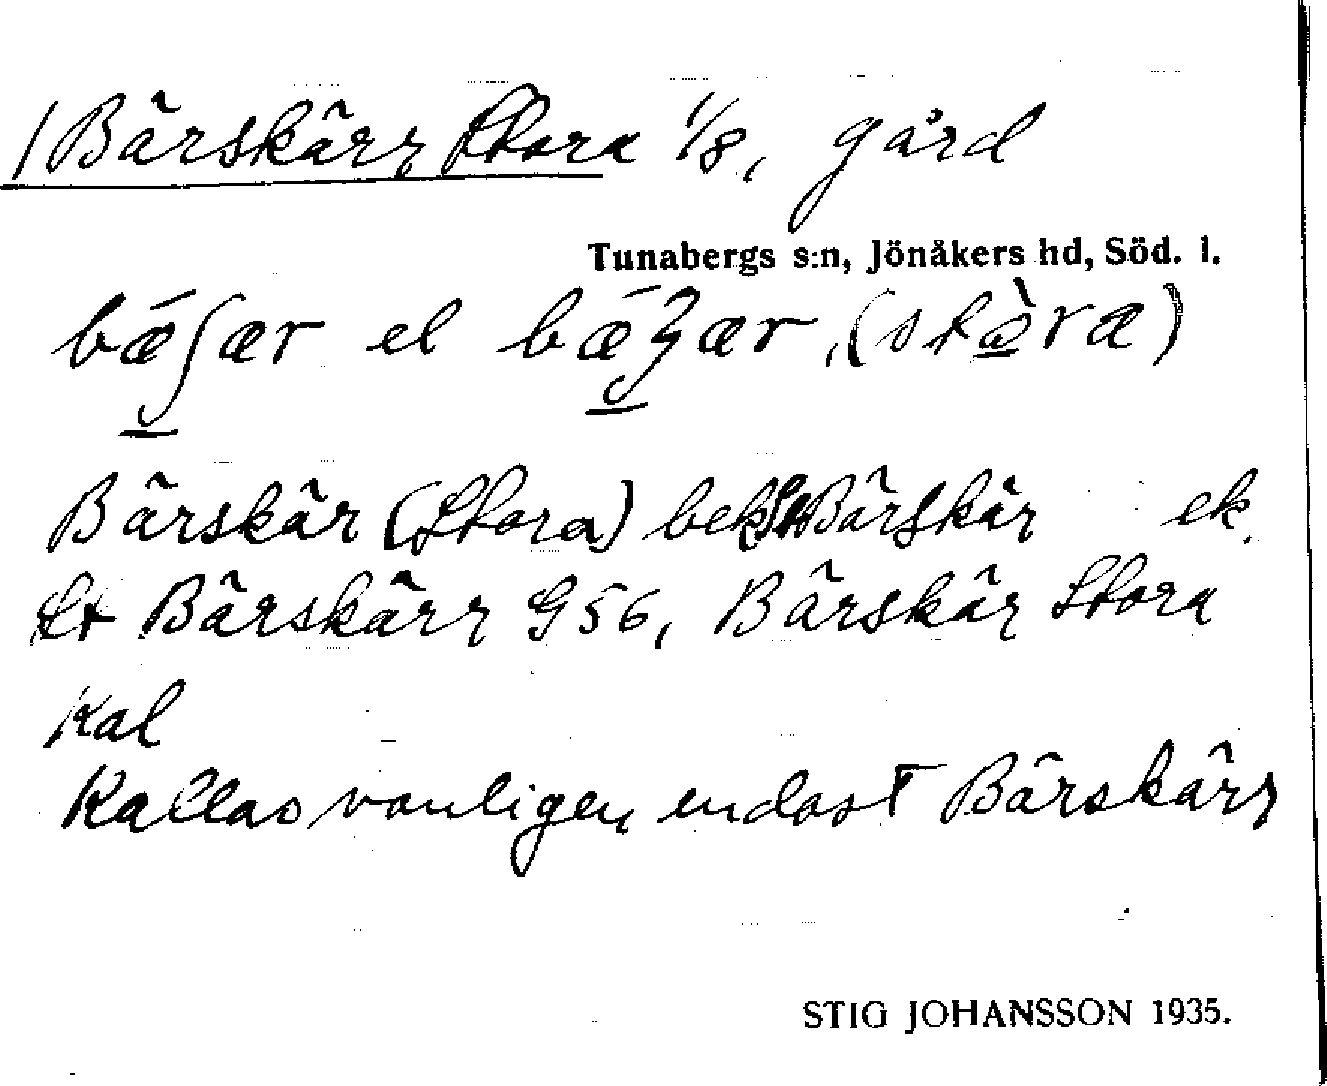 /Bärskärr Stora 1/8, gård
Tunabergs s:n, Jönåkers hd, Söd. l.
bæ̀ʃær el bæ̀ʒær, (stòra)
Bärskär (Stora) bek St Bärskär ek.
St Bärskärr G56, Bärskär Stora
Kal
Kallas vanligen endast Bärskärr
STIG JOHANSSON 1935.